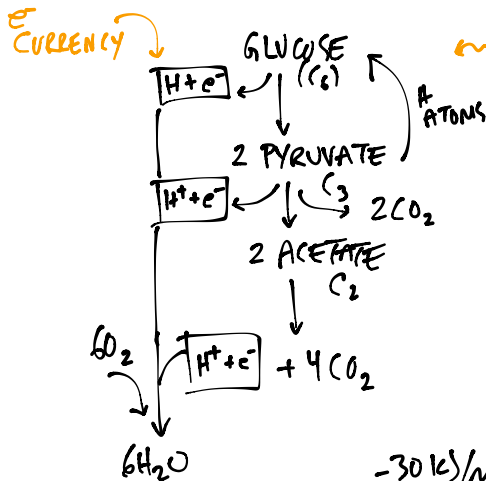 e-
CURRENCY
GLUCOSE
(C6)
H+e-
# ATOMS
2 PYRUVATE
C3
H++e-
2CO2
2 ACETATE
C2
6O2
H++e-
+ 4CO2
6H2O
-30 kJ/